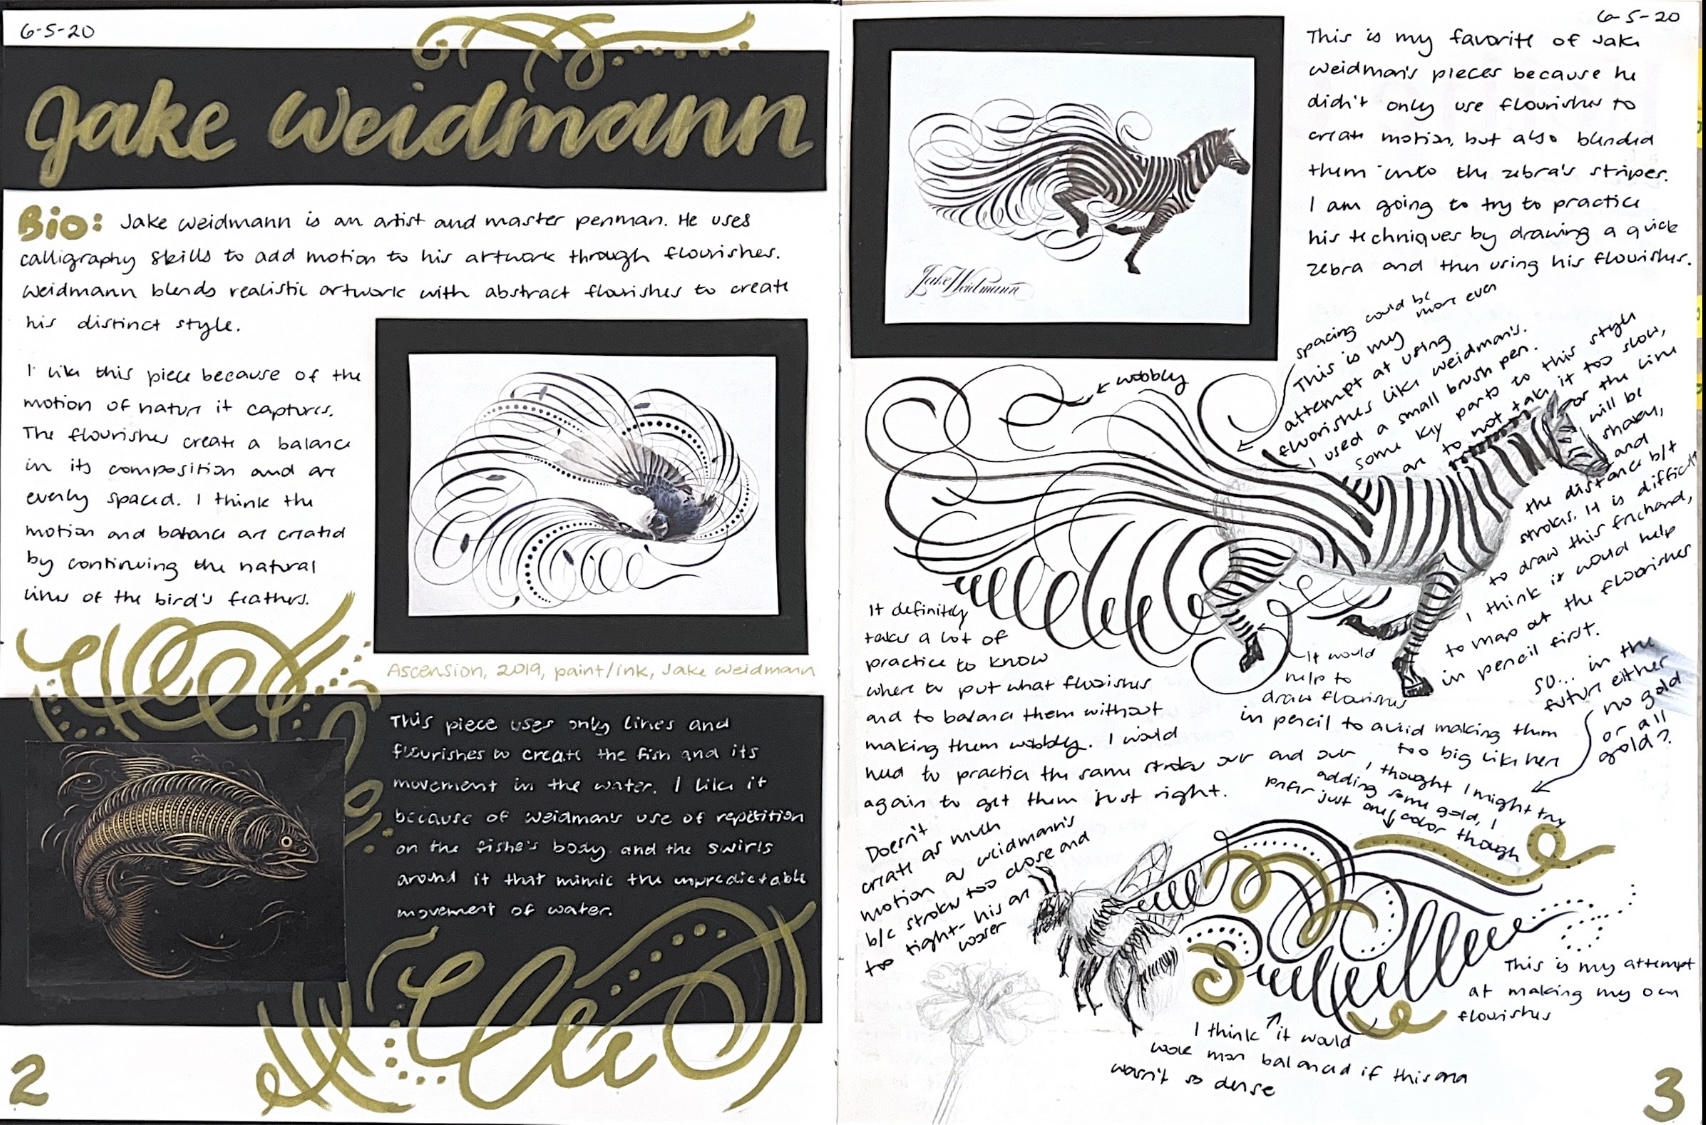 6-5-20
Jake Weidmann
Bio: Jake Weidmann is an artist and master penman. He uses
calligraphy skills to add motion to his artwork through flourishes.
Weidmann blends realistic artwork with abstract flourishes to create
his distinct style.
I like this piece because of the
motion of nature it captures.
The flourishes create a balance
in its composition and are
evenly spaced. I think the
motion and balance are created
by continuing the natural
lines of the bird's feathers.
Ascension, 2019, paint/ink, Jake Weidmann
This piece uses only lines and
flourishes to create the fish and its
movement in the water. I like it
because of Weidman's use of repetition
on the fishe's body and the swirls
around it that mimic the unpredictable
movement of water.
2
6-5-20
Jake Weidmann
This is my favorite of Jake
Weidman's pieces because he
didn't only use flourishes to
create motion, but also blended
them into the zebra's stripes.
I am going to try to practice
his techniques by drawing a quick
zebra and then using his flourishes.
spacing could be
more even
wobbly
This is my
attempt at using
flourishes like Weidmann's.
I used a small brush pen.
some key parts to this style
are to not take it too slow,
or the line
will be
shaky,
and
the distance b/t
strokes. It is difficult
to draw this freehand,
I think it would help
to map out the flourishes
in pencil first.
It definitely
takes a lot of
practice to know
where to put what flourishes
and to balance them without
making them wobbly. I would
need to practice the same strokes over and over
again to get them just right.
It would
help to
draw flourishes
in pencil to avoid making them
too big like here
so... in the
future either
no gold
or all
gold?
I thought I might try
adding some gold, I
prefer just one color though
Doesn't
create as much
motion as Weidmann's
b/c strokes too close and
too tight- his are
looser
This is my attempt
at making my own
flourishes
I think it would
look more balanced if this area
wasn't so dense
3